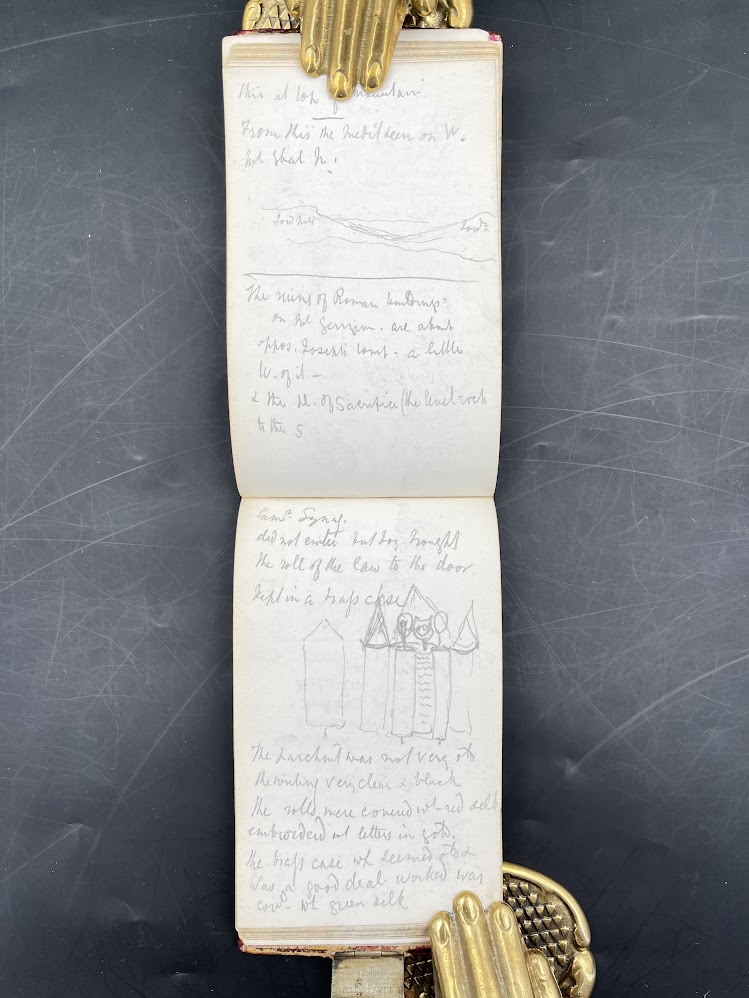 this at top of Mountain.
From this the Medit seen on W.
not Ebal N.
Low hills
Low
The ruins of Roman buildings
on Mt Gerizim. are about
oppos. Josephs tomb - a little
W. of it -
& the of Sacrifice (the level rock
to the S
Samn Synag.
did not enter but boy brought
the roll of the law to the door
kept in a brass case
The parchmt was not very old
the writing very clear & black
The rolls were covered wt red silk
embroiderd wt letters in gold.
the brass case wh seemed old &
was a good deal worked was
covd wt green silk